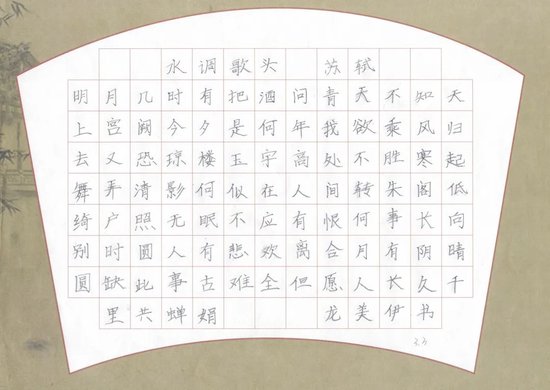 水调歌头 苏轼
明月几时有把酒问青天不知天
上宫阙今夕是何年我欲乘风归
去又恐琼楼玉宇高处不胜寒起
舞弄清影何似在人间转朱阁低
绮户照无眠不应有恨何事长向
别时圆人有悲欢离合月有阴晴
圆缺此事古难全但愿人长久千
里共蝉娟 龙美伊书